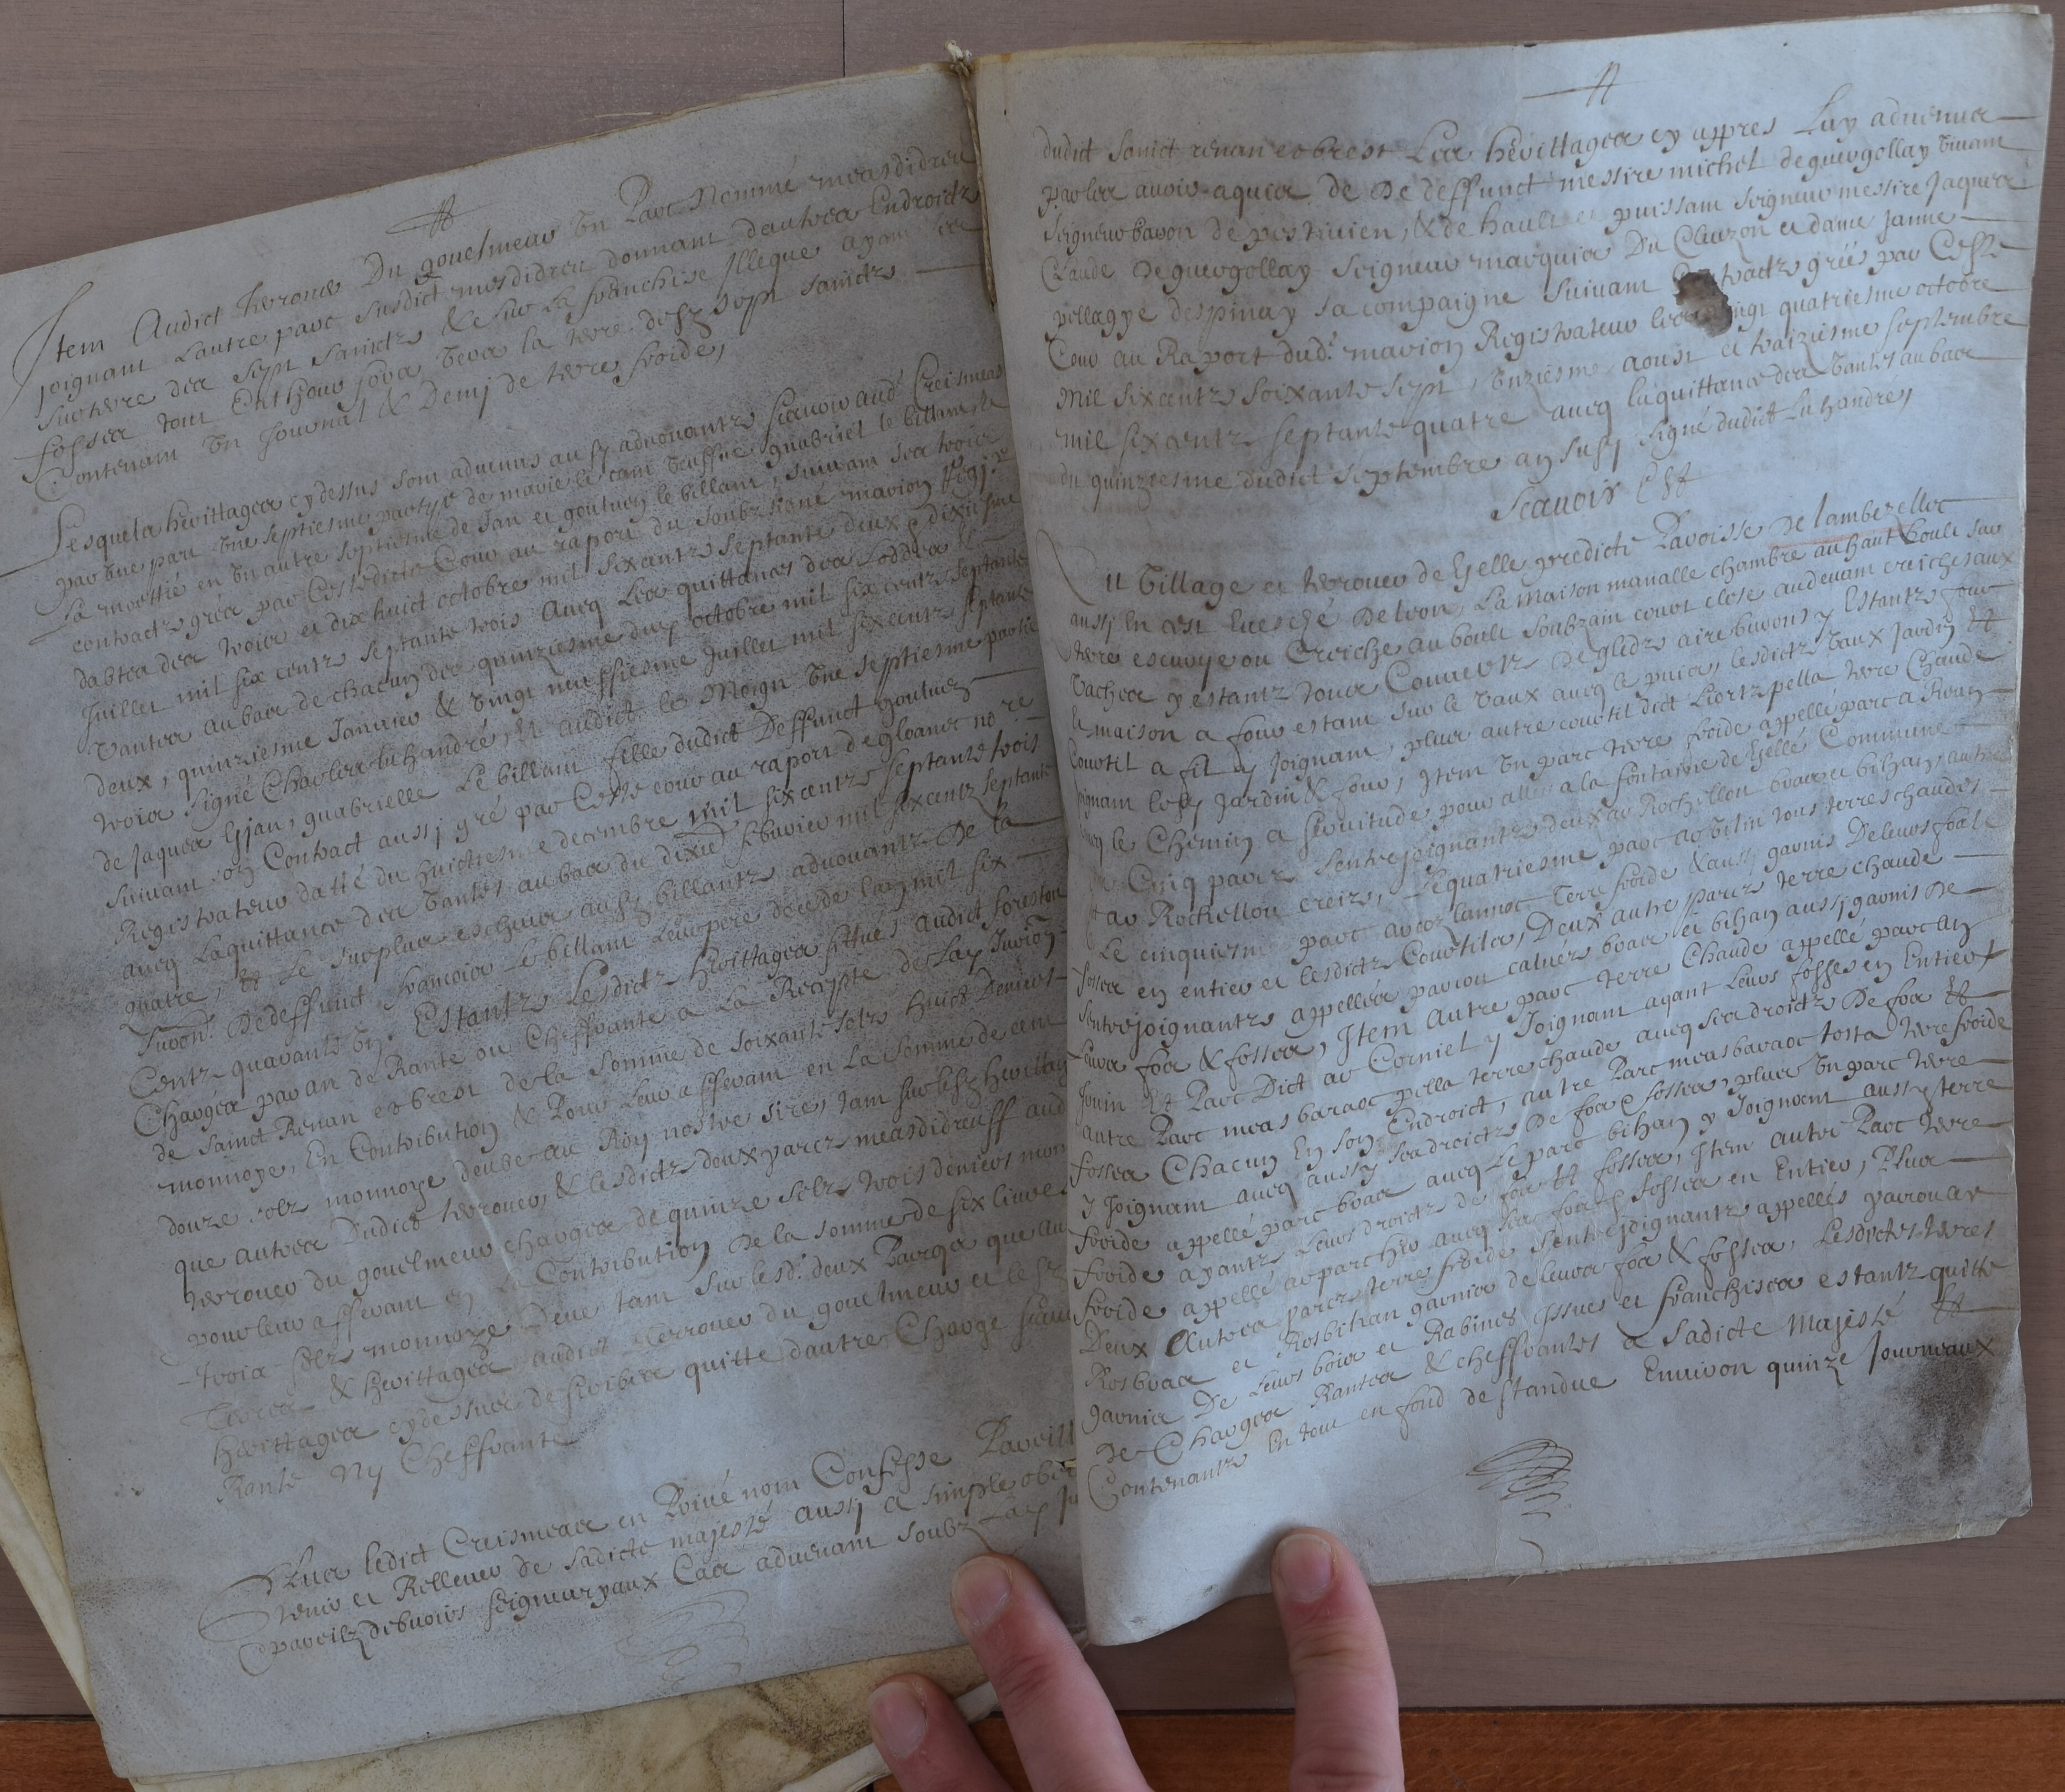 Item Audict terrouer Du gouelmeur Un Parc Nommé measdidreu
joignant Lautre parc susdict mesdidreu donnant dautres Endroictz
sur terre des sept sainctz & sur La franchise Illeque ayant ses
fosses tout Enthour fors Vers la terre desd. sept sainctz
Contenant Un Journal & Demj de terre froide,
Lesquels hérittages cydessus sont advenus ausd. advouantz scavoir aud. Creismeas
par une part Une septiesme partye de marie le cam veuffue guabriel le billant &
La moettié en Un autre septiesme de Jan et goulven le billant, suivant ses trois
contractz grées par Cestedicte Cour au rapport du soubzsigné marion Regis.
dabtés des trois et dix huict octobre mil sixcentz septante deux & dixiesme
Juillet mil six centz septante trois Avecq Les quittances des soddes &
Vantes au bas de chacun des quinziesme dud. octobre mil six centz septante
deux, quinziesme Janvier & vingt neuffiesme Juillet mil sixcentz septante
trois signé Charles Luhandré, Et audict le Moign Une septiesme partie
de Jaques Gjan, guabrielle Le billant fille dudict Deffunct goulven
suivant son Contract aussj gré par Ceste cour au raport de gloanec no.re
Registrateur datté du huictiesme decembre mil sixcentz septante trois
avecq Laquittance des Vantes au bas du dixie. febvrier mil sixcentz septante
quatre, Et Le surplus eschus ausd. billantz advouantz De la
Suon. Dedeffunct francois Le billant Leur pere décédé Lan mil six
Centz quarante Un. Estantz Lesdictz hérittages sittués audict foreston
Charges par an de Rante ou Cheffrante a La Recepte de Lad. Jurion
de Sainct Renan et brest de la somme de soixante solz huict Deniers
monnoye, En Contribution & Pour Leur affferant en La somme de cent
douze solz monnoye deube au Roy nostre sire, tant sur lesd. heritag
que autres Dudict terrouer, & lesdictz deux parcz measdidreuff aud
terrouer du gouelmeur charges de quinze solz trois deniers mon
pour leur affferant en La Contribution De la somme de six livres
trois solz monnoye Deue tant sur lesd. deux Parcqs que au
Terres & Herittages audict Terrouer du gouelmeur et lesd.
herittages cydessus de scribes quitte dautres Charge
Rante Ny Cheffrante
Plus ledict Creismeas en Privé nom Confesse Pareill
tenir et Relleuer de sadicte majesté aussj a simple obei
& pareilz debvoirs seigneuryaux Cas advenant soubz Lad. Ju
dudict sainct renan et brest Les hérittages cy appres Luy advenus
par les avoir aquis de De deffunct messire michel deguergollay vivant
seigneur baron de pestivien, & de hault et puissant seigneur messire Jaques
Claude Deguergollay seigneur marquis Du Cleuzon et dame Janne
pellagye despinay sa compaigne suivant contractz gréés par Ceste
Cour au Raport dud. marion Registrateur les vingt quatriesme octobre
Mil sixcentz soixante sept, unziesme aoust et traiziesme septembre
mil sixcentz septante quatre avecq laquittance des Vantes au bas
du quinziesme dudict septembre an susd. signé dudict Luhandré,
Scavoir Est
Au Village et terrouer de Gelle predicte Paroisse De lamberellec
aussj En cest Evesché De leon, La maison manalle chambre au hault & bout sur
terre escurye ou Creiche au bout soubzain court close audevant creiches aux
Vaches y estantz tous Couvertz De gledz aire buron y Estantz four
& maison a four estant sur le Vaux avecq le puis, lesdictz Vaux Jardin Et
Courtil a fil y Joignant, plus autre courtil dict Liortz pella terre Chaude
joignant lesd. Jardin & four, Item Un parc terre froide appellé parc a Roun
le Chemin a servitude pour aller a la fontaine de Gelle Commune
Cinq parcz sentrejoignantz deux ar Rochellou bras et bihan, autre
ar Rochellou creiz, Lequatriesme parc ar Vilin tous terres chaudes
Le cinquiesme parc ar cozlannoc Terre froide & aussj garnis De leurs foss &
fosses en entier et lesdictz Courtils, Deux autre parcz terre chaude
sentrejoignantz appelles parcou calvés bras et bihan aussj garnis De
Leurs fos & fosses, Item Autre parc terre Chaude appellé parc an
Jouin Et Parc Dict ar Corniel y Joignant ayant Leurs fosses en Entier
autre Parc meas baraoc pella terre chaude avecq ses droictz De fos &
fosses Chacun En son Endroict, autre Parc meas baraoc tosta terre froide
y Joignant avecq aussy ses droictz De fos & fosses, plus un parc terre
froide appellé parc bras avecq Le parc bihan y Joignant aussy terre
froide ayantz Leurs droictz de fos Et fosses, Item autre Parc terre
froide appellé ar parc hir avecq ses fos & fosses en Entier, Plus
Deux Autres parcz terre froide sentrejoignantz appellés parrouar
Rosbras et Rosbihan garnis de leurs fos & fosses, Lesdictes terres
garnis De Leurs bois et Rabines Issues et franchises estantz quitte
de Charges Rantes & cheffrantes a Sadicte Majesté Et
Contenantz En tout en fond de standue Environ quinze Journaux